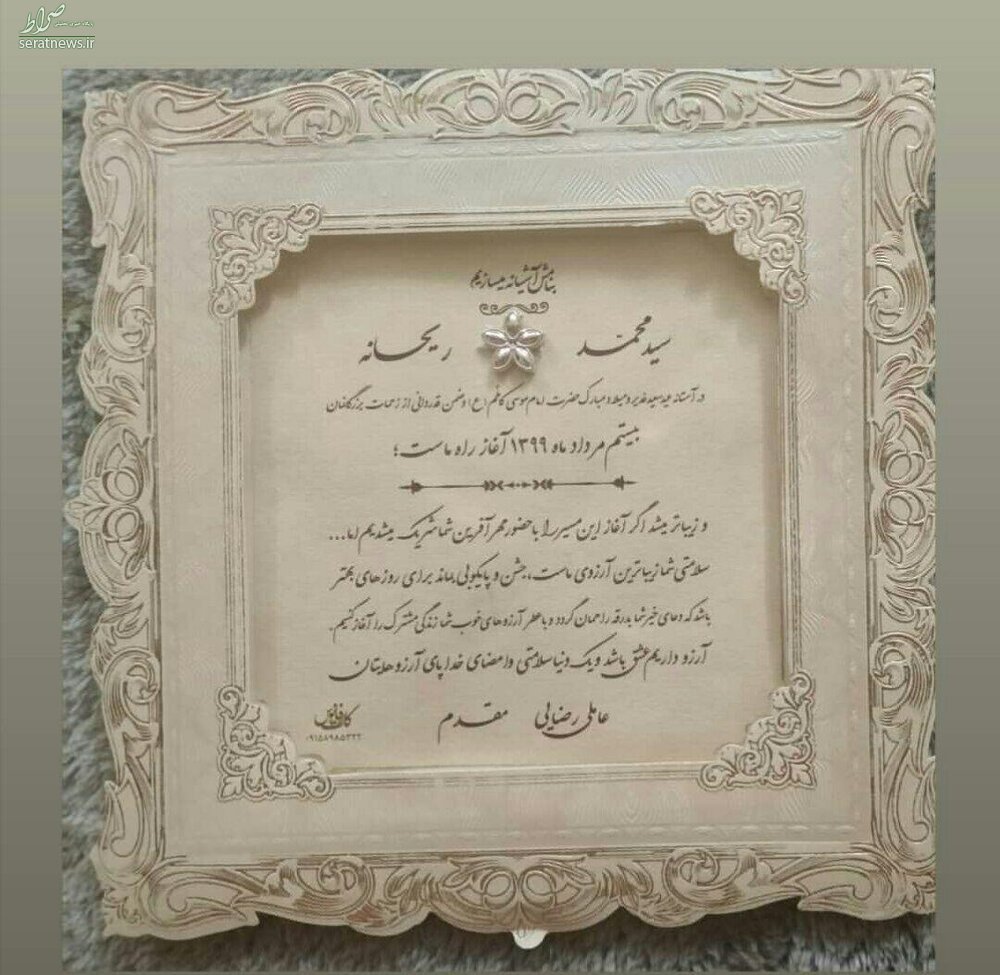 صراط
seratnews.ir
بنامش آشیانه میسازیم
سید محمد ریحانه
در آستانه عید سعید غدیر و میلاد مبارک حضرت امام موسی کاظم (ع) و ضمن قدردانی از زحمات بزرگانمان
بیستم مرداد ماه ۱۳۹۹ آغاز راه ماست؛
و زیباتر میشد اگر آغاز این مسیر را با حضور مهرآفرین شما شریک میشدیم اما...
سلامتی شما زیباترین آرزوی ماست، جشن و پایکوبی بماند برای روزهای بهتر
باشد که دعای خیر شما بدرقه راهمان گردد و با عطر آرزوهای خوب شما زندگی مشترک را آغاز کنیم.
آرزو داریم عشق باشد و یک دنیا سلامتی و امضای خدا پای آرزوهایتان
عاملی رضایی مقدم
۰۹۱۵۸۹۸۵۳۲۲